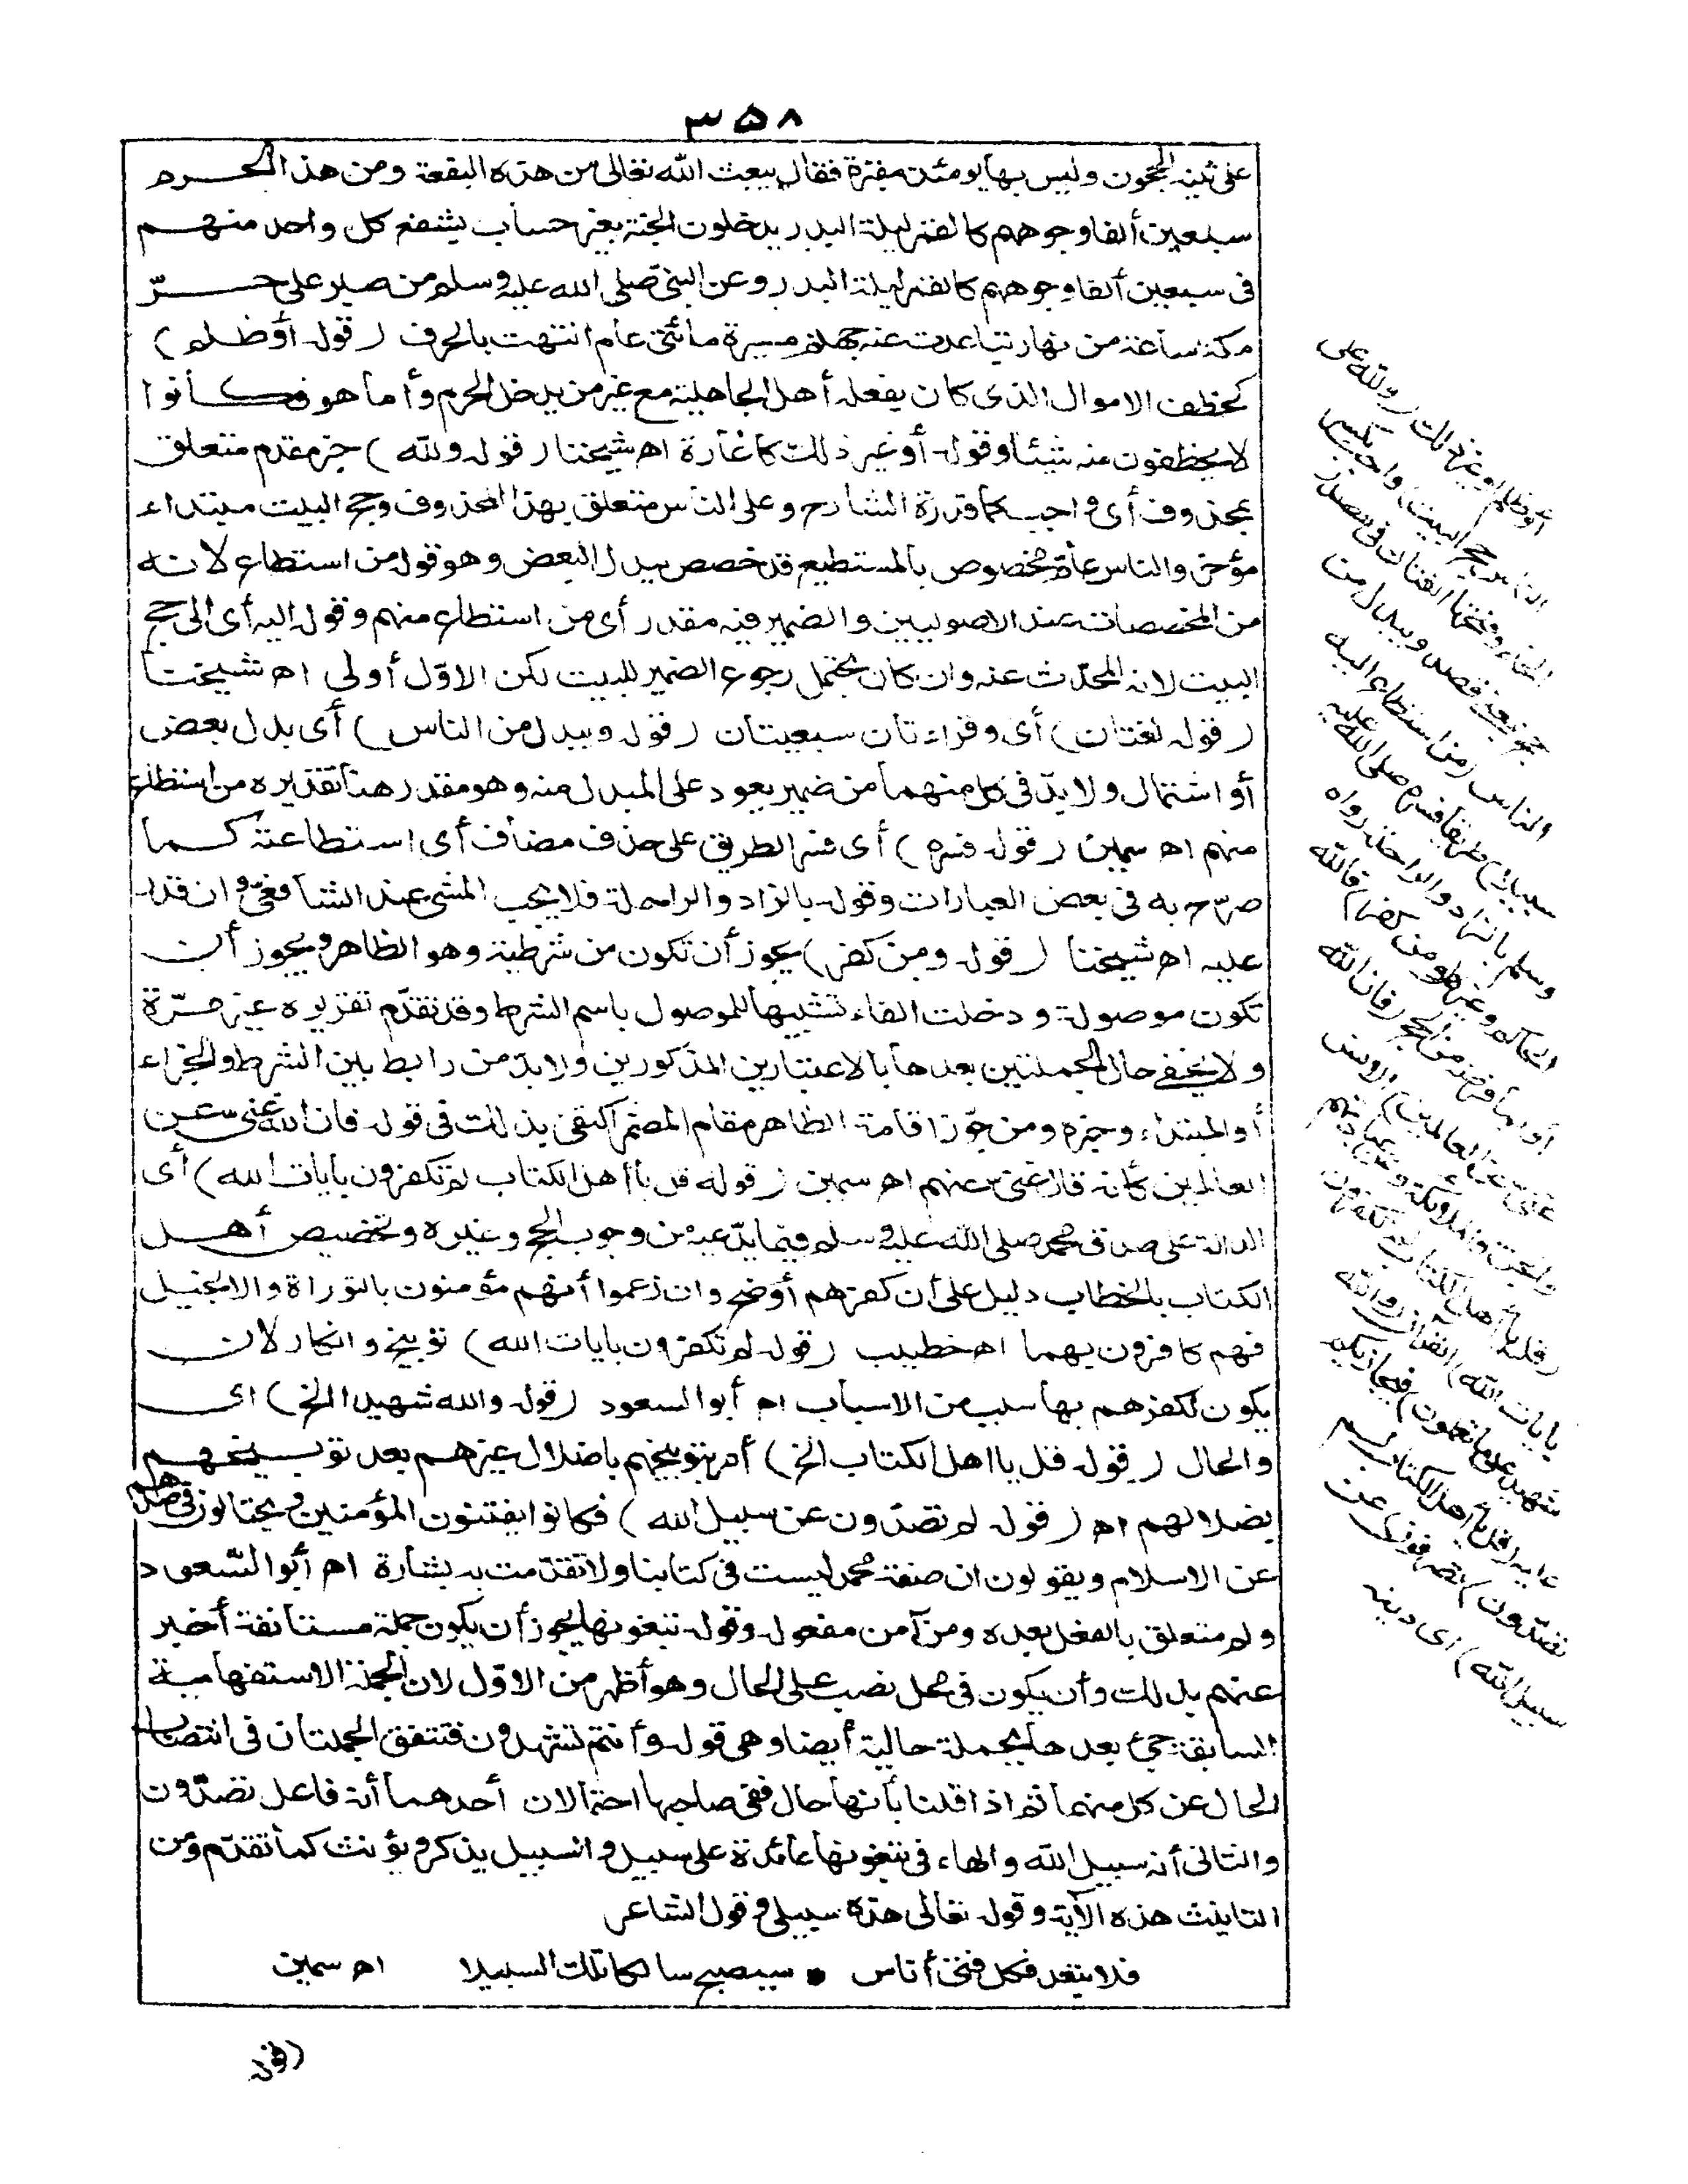 ٣٥٨
على ثنية الحجون وليس بها يومئذ مقبرة فقال يبعث الله تعالى من هذه البقعة ومن هذا الحرم
سبعين ألفا وجوههم كالقمر ليلة البدر يدخلون الجنة بغير حساب يشفع كل واحد منهم
فى سبعين ألفا وجوههم كالقمر ليلة البدر وعن النبى صلى الله عليه وسلم من صبر على حرّ
مكة ساعة من نهار تباعدت عنه جهنم مسيرة مائتى عام انتهت بالحرف (قوله أو ظلم)
كخطف الاموال الذى كان يفعله أهل الجاهلية مع غير من يدخل الحرم وأما هو فكانوا
لا يخطفون منه شيئا وقوله أو غير ذلك كاغارة اه شيخنا (قوله ولله) خبر مقدم متعلق
بمحذوف أى واجب كما قدره الشارح وعلى الناس متعلق بهذا المحذوف وحج البيت مبتداء
مؤخر والناس عام مخصوص بالمستطيع قد خصص ببدل البعض وهو قوله من استطاع لانه
من المخصصات عند الاصوليين والضمير فيه مقدر أى من استطاع منهم وقوله اليه أى الى حج
البيت لانه المحدّث عنه وان كان يحتمل رجوع الضمير للبيت لكن الاوّل أولى اه شيخنا
(قوله لغتان) أى وقراءتان سبعيتان (قوله ويبدل من الناس) أى بدل بعض
أو اشتمال ولا بدّ فى كل منهما من ضمير يعود على المبدل منه وهو مقدر هنا تقديره من استطاع
منهم اه سمين (قوله فسره) أى فسر الطريق على حذف مضاف أى استطاعته كما
صرّح به فى بعض العبارات وقوله بالزاد والراحلة فلا يجب المشى عند الشافعىّ وان قدر
عليه اه شيخنا (قوله ومن كفر) يجوز أن تكون من شرطية وهو الظاهر ويجوز أن
تكون موصولة ودخلت الفاء تشبيها للموصول باسم الشرط وقد تقدّم تقريره غير مرّة
ولا يخفى حال الجملتين بعدها بالاعتبارين المذكورين ولا بد من رابط بين الشرط والجزاء
أو المبتداء وخبره ومن جوّز اقامة الظاهر مقام المضمر اكتفى بذلك فى قوله فان الله غنى عن
العالمين كأنه قال غنى عنهم اه سمين (قوله قل يا أهل الكتاب لم تكفرون بايات الله) أى
الدالة على صدق محمد صلى الله عليه وسلم فيما يدّعيه من وجوب الحج وغيره وتخصيص أهل
الكتاب بالخطاب دليل على أن كفرهم أوضح وان زعموا أنهم مؤمنون بالتوراة والانجيل
فهم كافرون بهما اه خطيب (قوله لم تكفرون بايات الله) توبيخ وانكار لان
يكون لكفرهم بها سبب من الاسباب اه أبو السعود (قوله والله شهيد الخ) اى
والحال (قوله قل يا اهل الكتاب الخ) أمر بتوبيخهم باضلال غيرهم بعد توبيخهم
بضلالهم اه (قوله لم تصدّون عن سبيل الله) فكانوا يفتنون المؤمنين ويحتالون فى صدّهم
عن الاسلام ويقولون ان صفة محمد ليست فى كتابنا ولا تقدّمت به بشارة اه أبو السّعود
ولم متعلق بالفعل بعده ومن آمن مفعول وقوله تبغونها يجوز أن يكون جملة مستأنفة أخبر
عنهم بذلك وأن يكون فى محل نصب على الحال وهو أظهر من الاوّل لان الجملة الاستفهامية
السابقة جىء بعدها بجملة حالية أيضا وهى قوله وأنتم تشهدون فتتفق الجملتان فى انتصاب
الحال عن كل منهما ثم اذا قلنا بأنها حال ففى صاحبها احتمالان أحدهما أنه فاعل تصدّون
والثانى أنه سبيل الله والهاء فى تبغونها عائدة على سبيل والسبيل يذكر ويؤنث كما تقدّم ومن
التانيث هذه الآية وقوله تعالى هذه سبيلى وقول الشاعر
فلا تبعد فكل فتى أناس • سيصبح سالكا تلك السبيلا اه سمين
(قوله
أو ظلم أو غير ذلك (ولله على
الناس حج البيت) واجب بكسر
الحاء وفتحها لغتان فى مصدر
حج بمعنى قصد ويبدل من
الناس (من استطاع اليه
سبيلا) طريقا فسره صلى الله عليه
وسلم بالزاد والراحلة رواه
الحاكم وغيره (ومن كفر) بالله
أو بما فرضه من الحج (فان الله
غنى عن العالمين) الانس
والجن والملائكة وعن عبادتهم
(قل يا أهل الكتاب لم تكفرون
بايات الله) القرآن (والله
شهيد على ما تعملون) فيجازيكم
عليه (قل يا أهل الكتاب لم
تصدّون) تصرفون (عن
سبيل الله) اى دينه